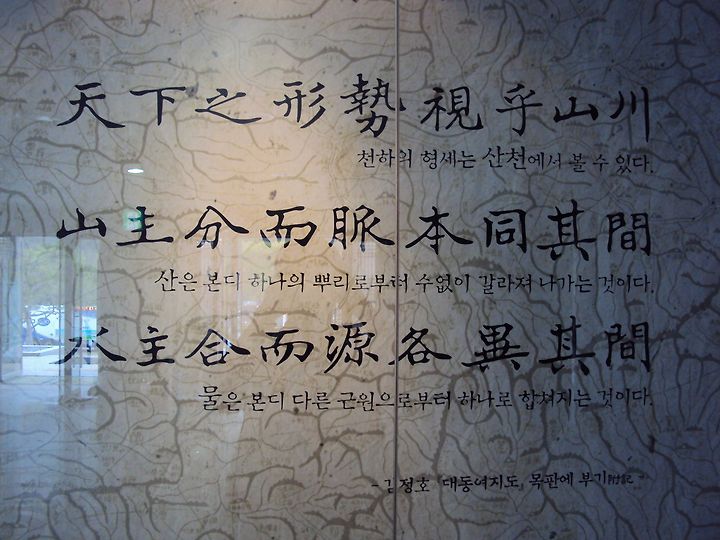 天下之形勢視乎山川
천하의 형세는 산천에서 볼 수 있다.
山主分而脈本同其間
산은 본디 하나의 뿌리로부터 수없이 갈라져 나가는 것이다.
水主合而源各異其間
물은 본디 다른 근원으로부터 하나로 합쳐지는 것이다.
- 김정호 대동여지도, 목판에 부기附記 -